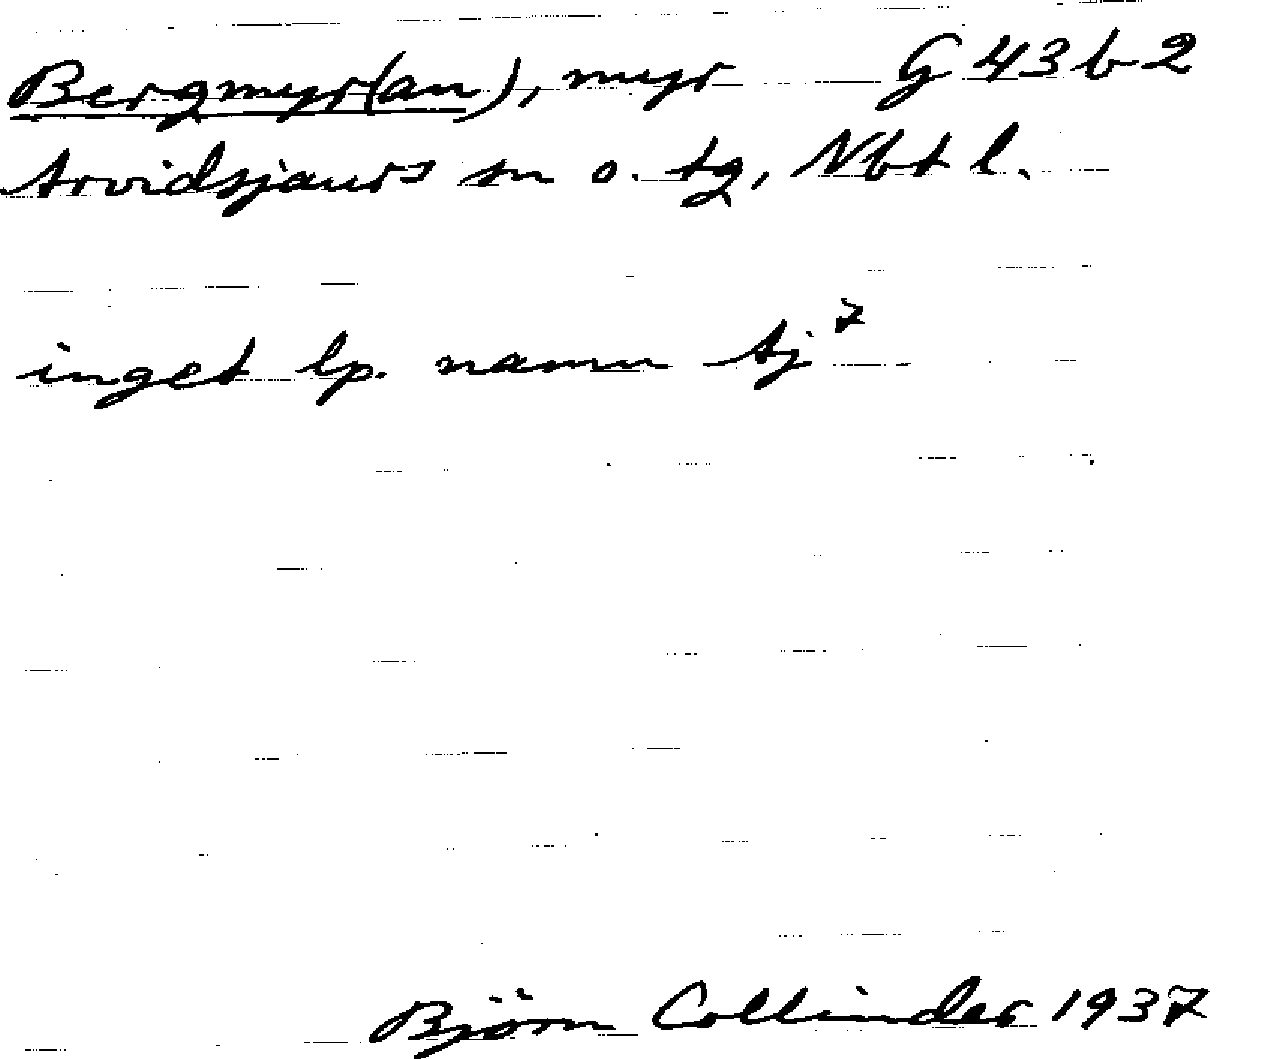 Bergmyr(an), myr G 43 b 2
Arvidsjaurs sn o. tg, Nbt l.
inget lp. namn Aj 7
Björn Collinder 1937